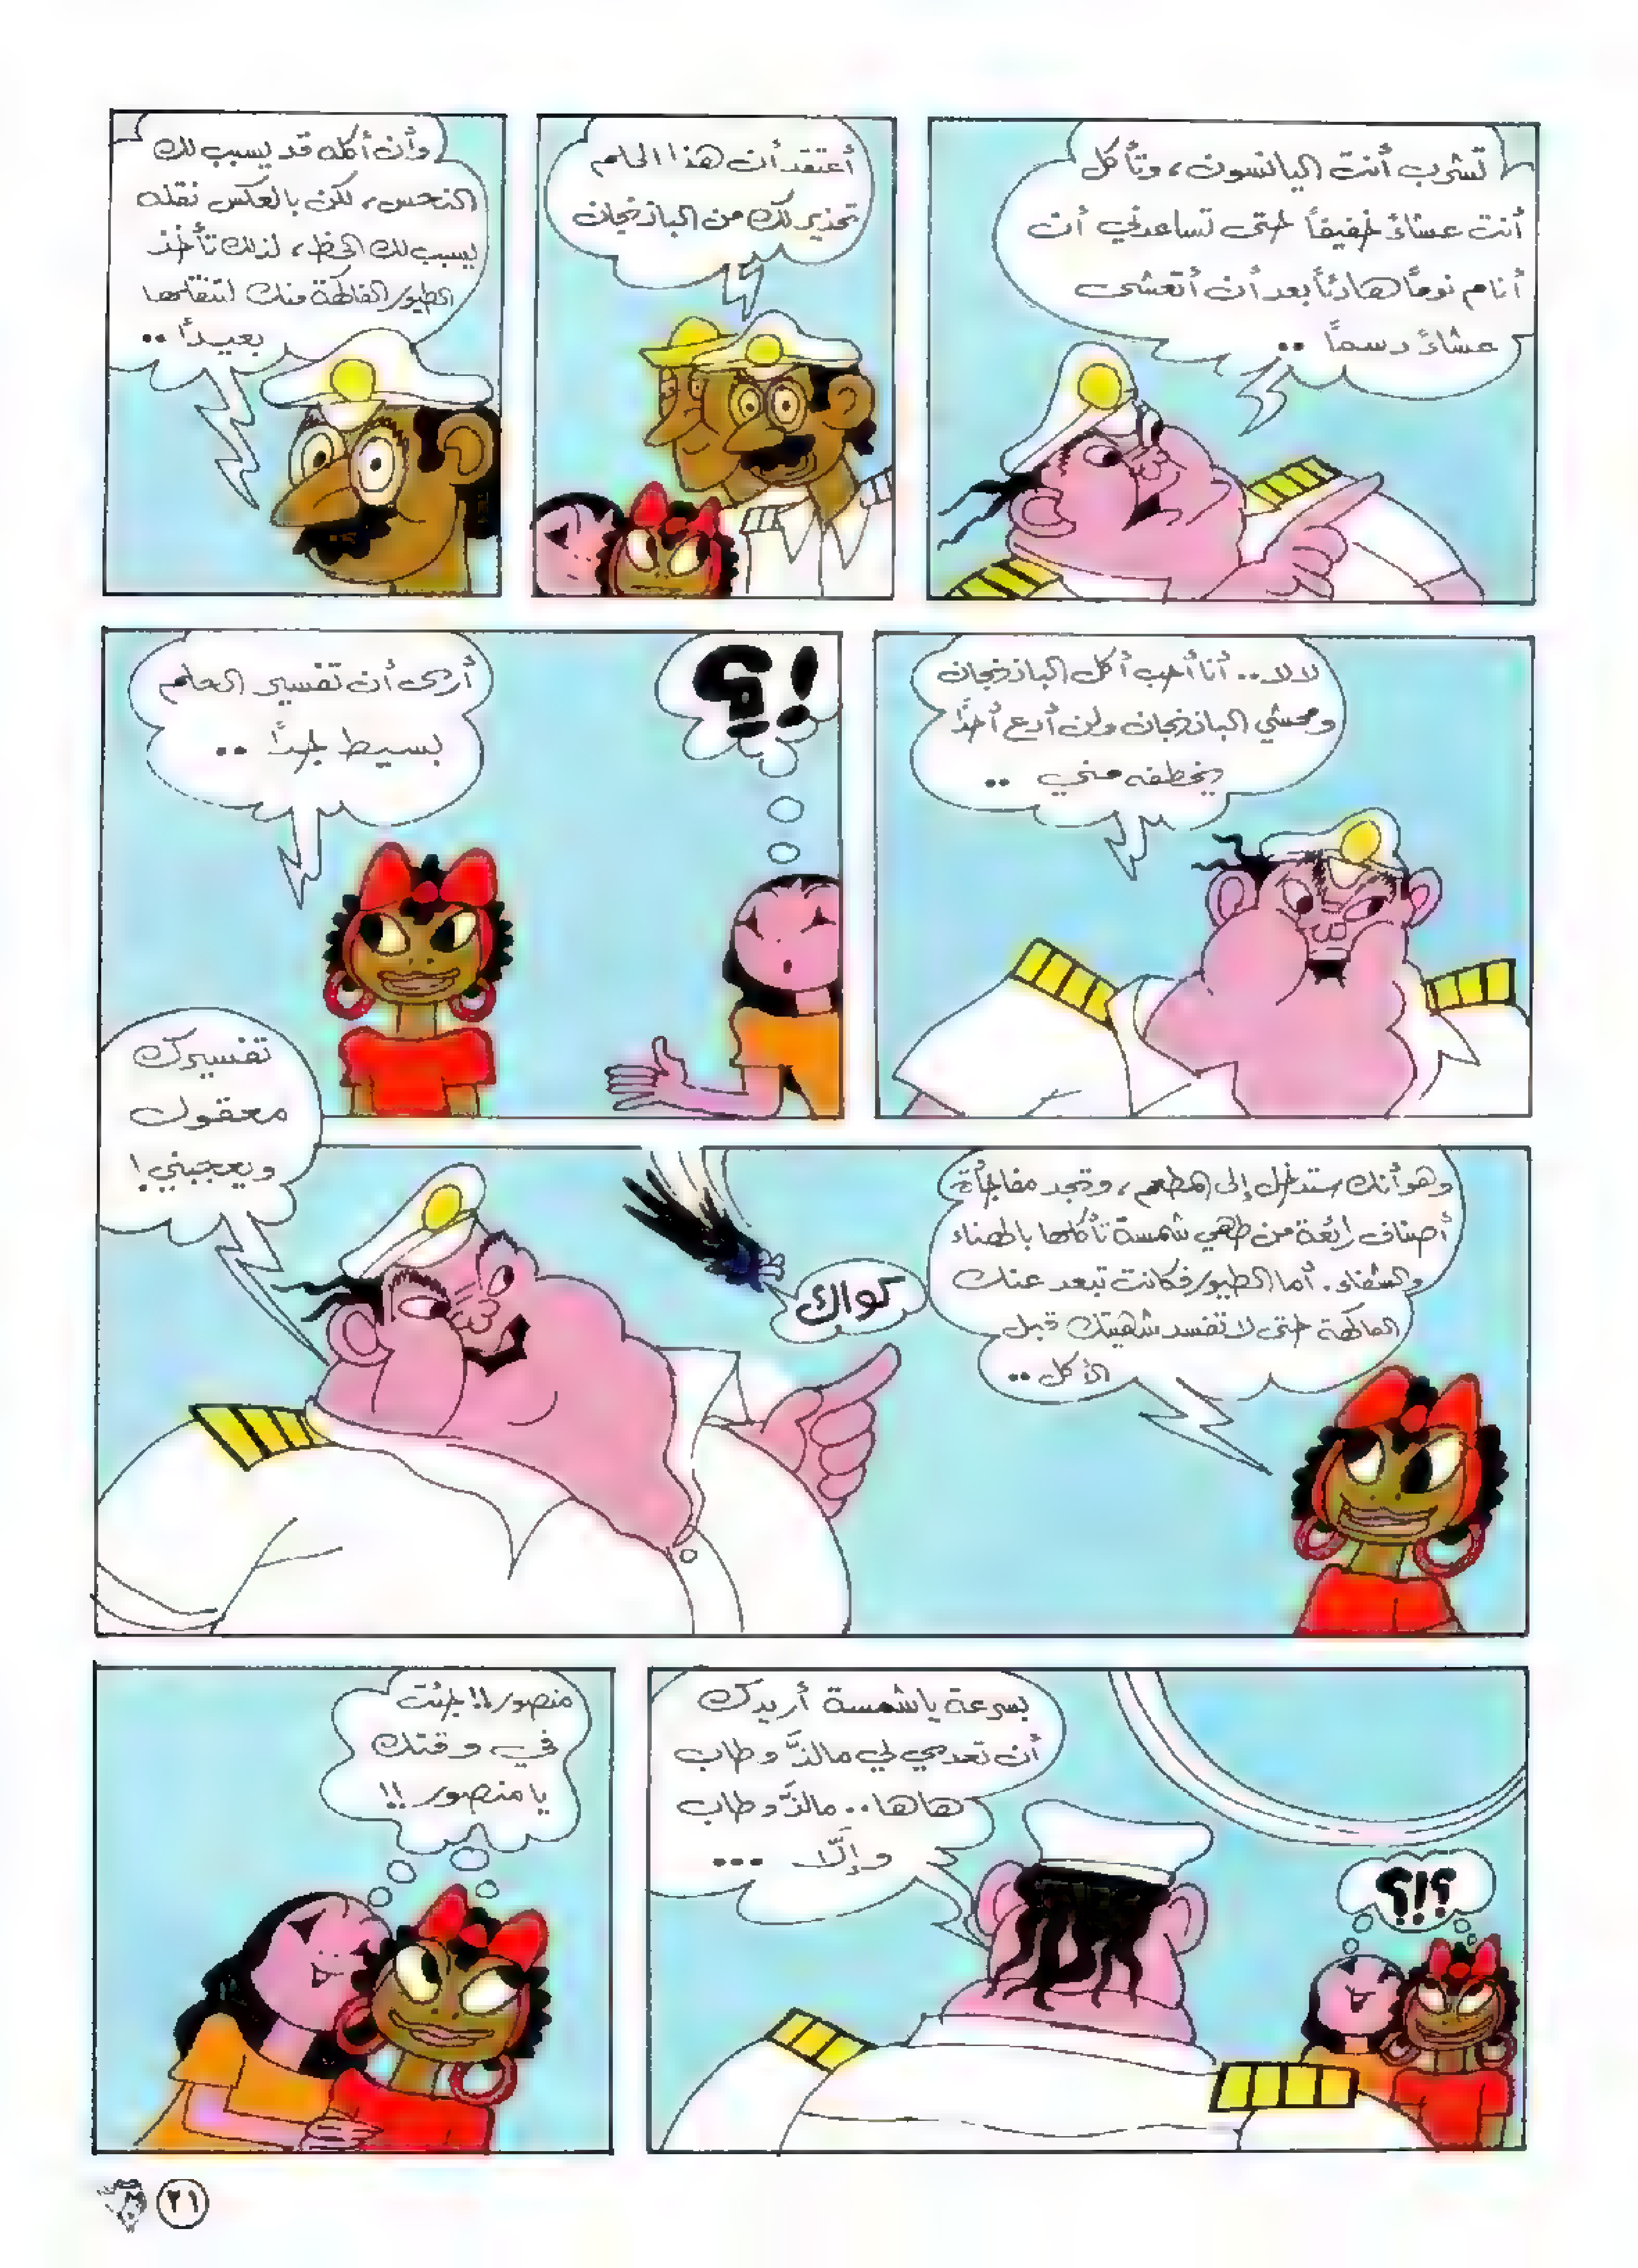 تشرب أنت اليانسون، وتأكل
أنت عشاءً خفيفاً حتى تساعدني أن
أنام نوماً هادئاً بعد أن أتعشى
عشاءً دسماً ..
أعتقد أن هذا الحلم
تحذير لك من الباذنجان
وأن أكله قد يسبب لك
النحس، لكن بالعكس نقله
يسبب لك الحظ، لذلك تأخذ
الطيور الفاكهة منك لتنقلها
بعيداً ..
لا لا.. أنا أحب أكل الباذنجان
ومحشي الباذنجان ولن أدع أحداً
يخطفه مني ..
!؟
أرى أن تفسير الحلم
بسيط جداً ..
وهو أنك ستدخل إلى المطعم، وتجد مفاجأة
أصناف رائعة من طهي شمسة تأكلها بالهناء
والشفاء. أما الطيور فكانت تبعد عنك
الفاكهة حتى لا تفسد شهيتك قبل
الأكل ..
كواك
تفسيرك
معقول
ويعجبني!
بسرعة يا شمسة أريدك
أن تعدي لي ما لذَّ وطاب
هاها.. ما لذَّ وطاب
وإلَّا ...
؟!؟
منصور!! جئت
في وقتك
يا منصور!!
٢١